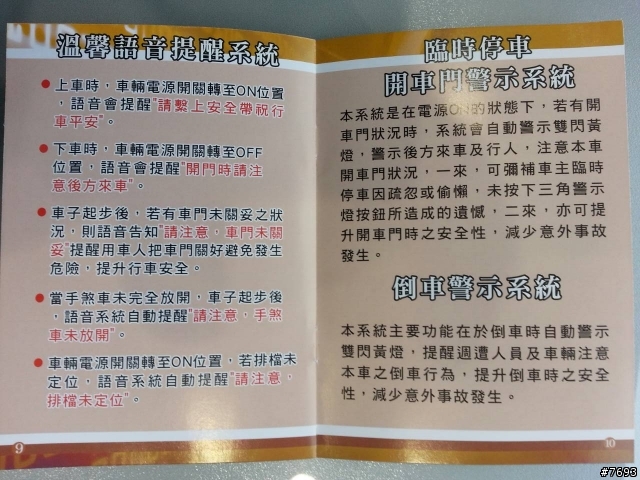 溫馨語音提醒系統
●上車時，車輛電源開關轉至ON位置
，語音會提醒"請繫上安全帶祝行
車平安"。
●下車時，車輛電源開關轉至OFF
位置，語音會提醒"開門時請注
意後方來車"。
●車子起步後，若有車門未關妥之狀
況，則語音告知"請注意，車門未關
妥"提醒用車人把車門關好避免發生
危險，提升行車安全。
●當手煞車未完全放開，車子起步後
，語音系統自動提醒"請注意，手煞
車未放開"。
●車輛電源開關轉至ON位置，若排檔未
定位，語音系統自動提醒"請注意，
排檔未定位"。
9
臨時停車
開車門警示系統
本系統是在電源ON的狀態下，若有開
車門狀況時，系統會自動警示雙閃黃
燈，警示後方來車及行人，注意本車
開車門狀況，一來，可彌補車主臨時
停車因疏忽或偷懶，未按下三角警示
燈按鈕所造成的遺憾，二來，亦可提
升開車門時之安全性，減少意外事故
發生。
倒車警示系統
本系統主要功能在於倒車時自動警示
雙閃黃燈，提醒週遭人員及車輛注意
本車之倒車行為，提升倒車時之安全
性，減少意外事故發生。
10
#7693